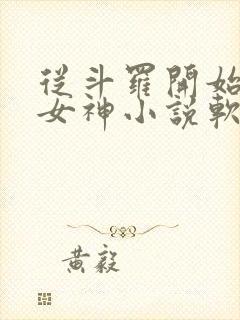 從斗羅開始
女神小說軟
黃毅